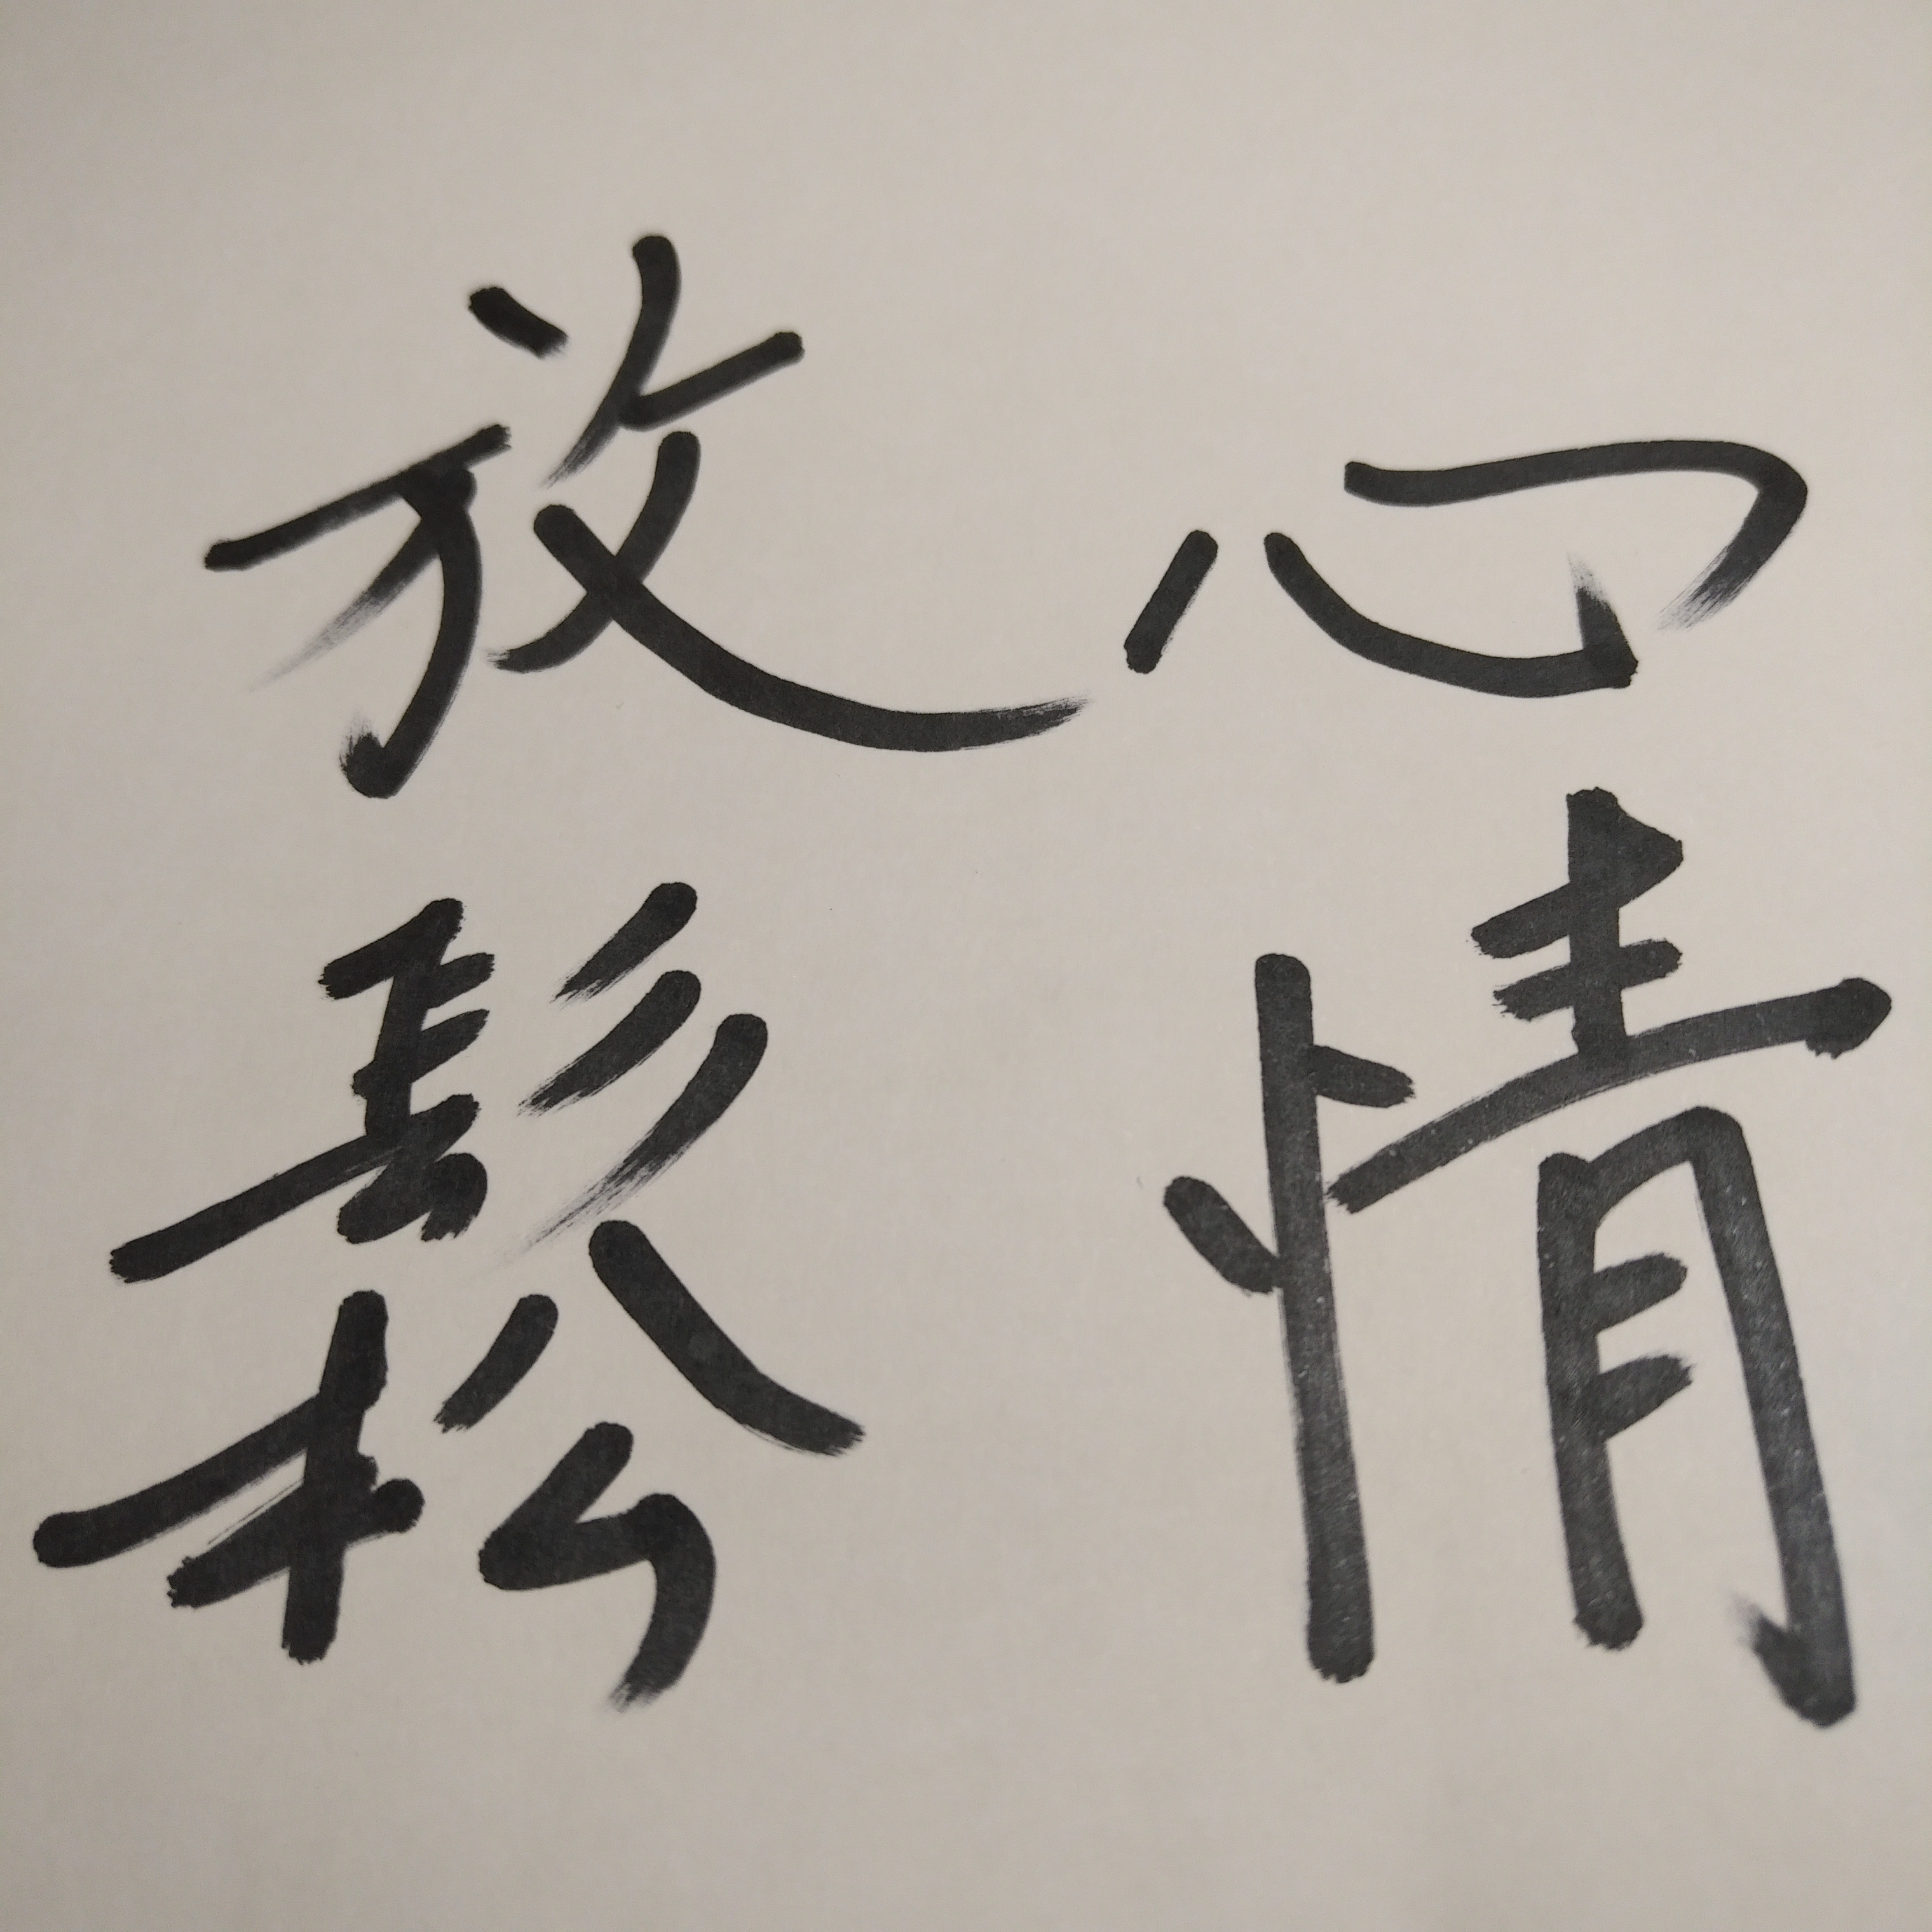 心情
放鬆